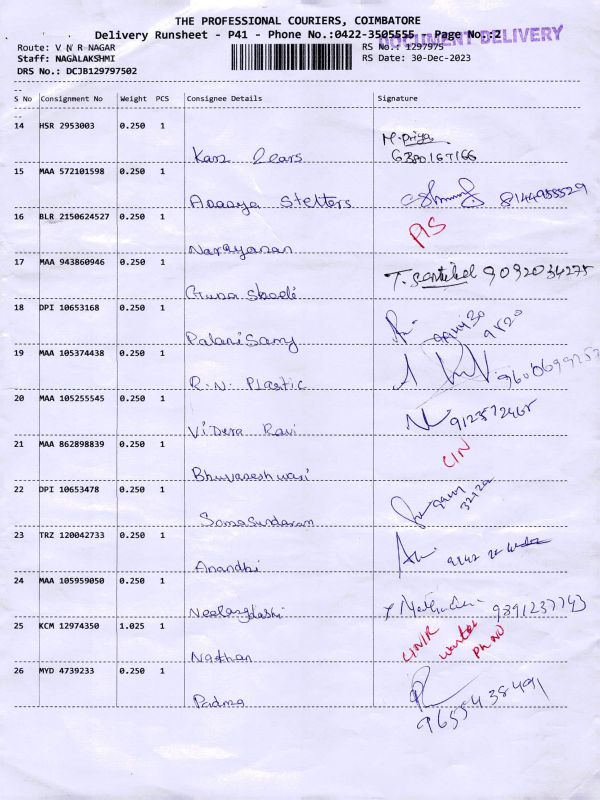 THE PROFESSIONAL COURIERS, COIMBATORE
Delivery Runsheet - P41 - Phone No.:0422-3505555 - Page No.:2
DOCUMENT DELIVERY
Route: V N R NAGAR RS No.: 1297975
Staff: NAGALAKSHMI RS Date: 30-Dec-2023
DRS No.: DCJB129797502
S No Consignment No Weight PCS Consignee Details Signature
14 HSR 2953003 0.250 1
M.Priya
Kars
15 MAA 572101598 0.250 1
8144955529
16 BLR 2150624527 0.250 1
Narayanan
17 MAA 943860946 0.250 1
T. Senthil 9092034275
18 DPI 10653168 0.250 1
PalaniSamy
19 MAA 105374438 0.250 1
R.N. Plastic
20 MAA 105255545 0.250 1
Ravi 9123572465
21 MAA 862898839 0.250 1
Bhuvaneshwari
22 DPI 10653478 0.250 1
SomaSundaram
23 TRZ 120042733 0.250 1
Anandhi
24 MAA 105959050 0.250 1
9891237743
25 KCM 12974350 1.025 1
Ph NO
Nathan
26 MYD 4739233 0.250 1
Padma 9655438491